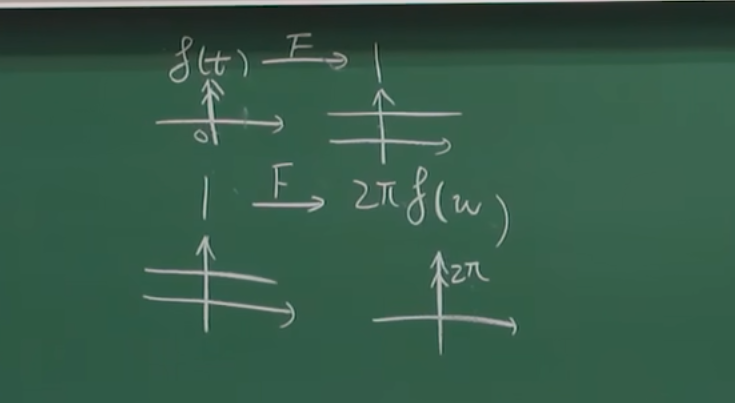 δ(t) F→ 1
0
1 F→ 2πδ(w)
2π